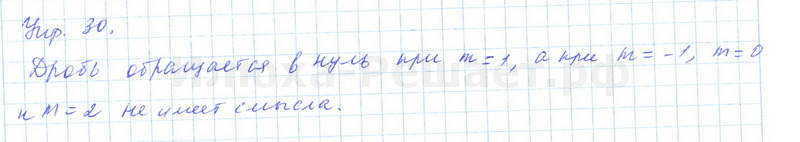 Упр. 30.
Дробь обращается в нуль при m = 1, а при m = -1, m = 0
и m = 2 не имеет смысла.